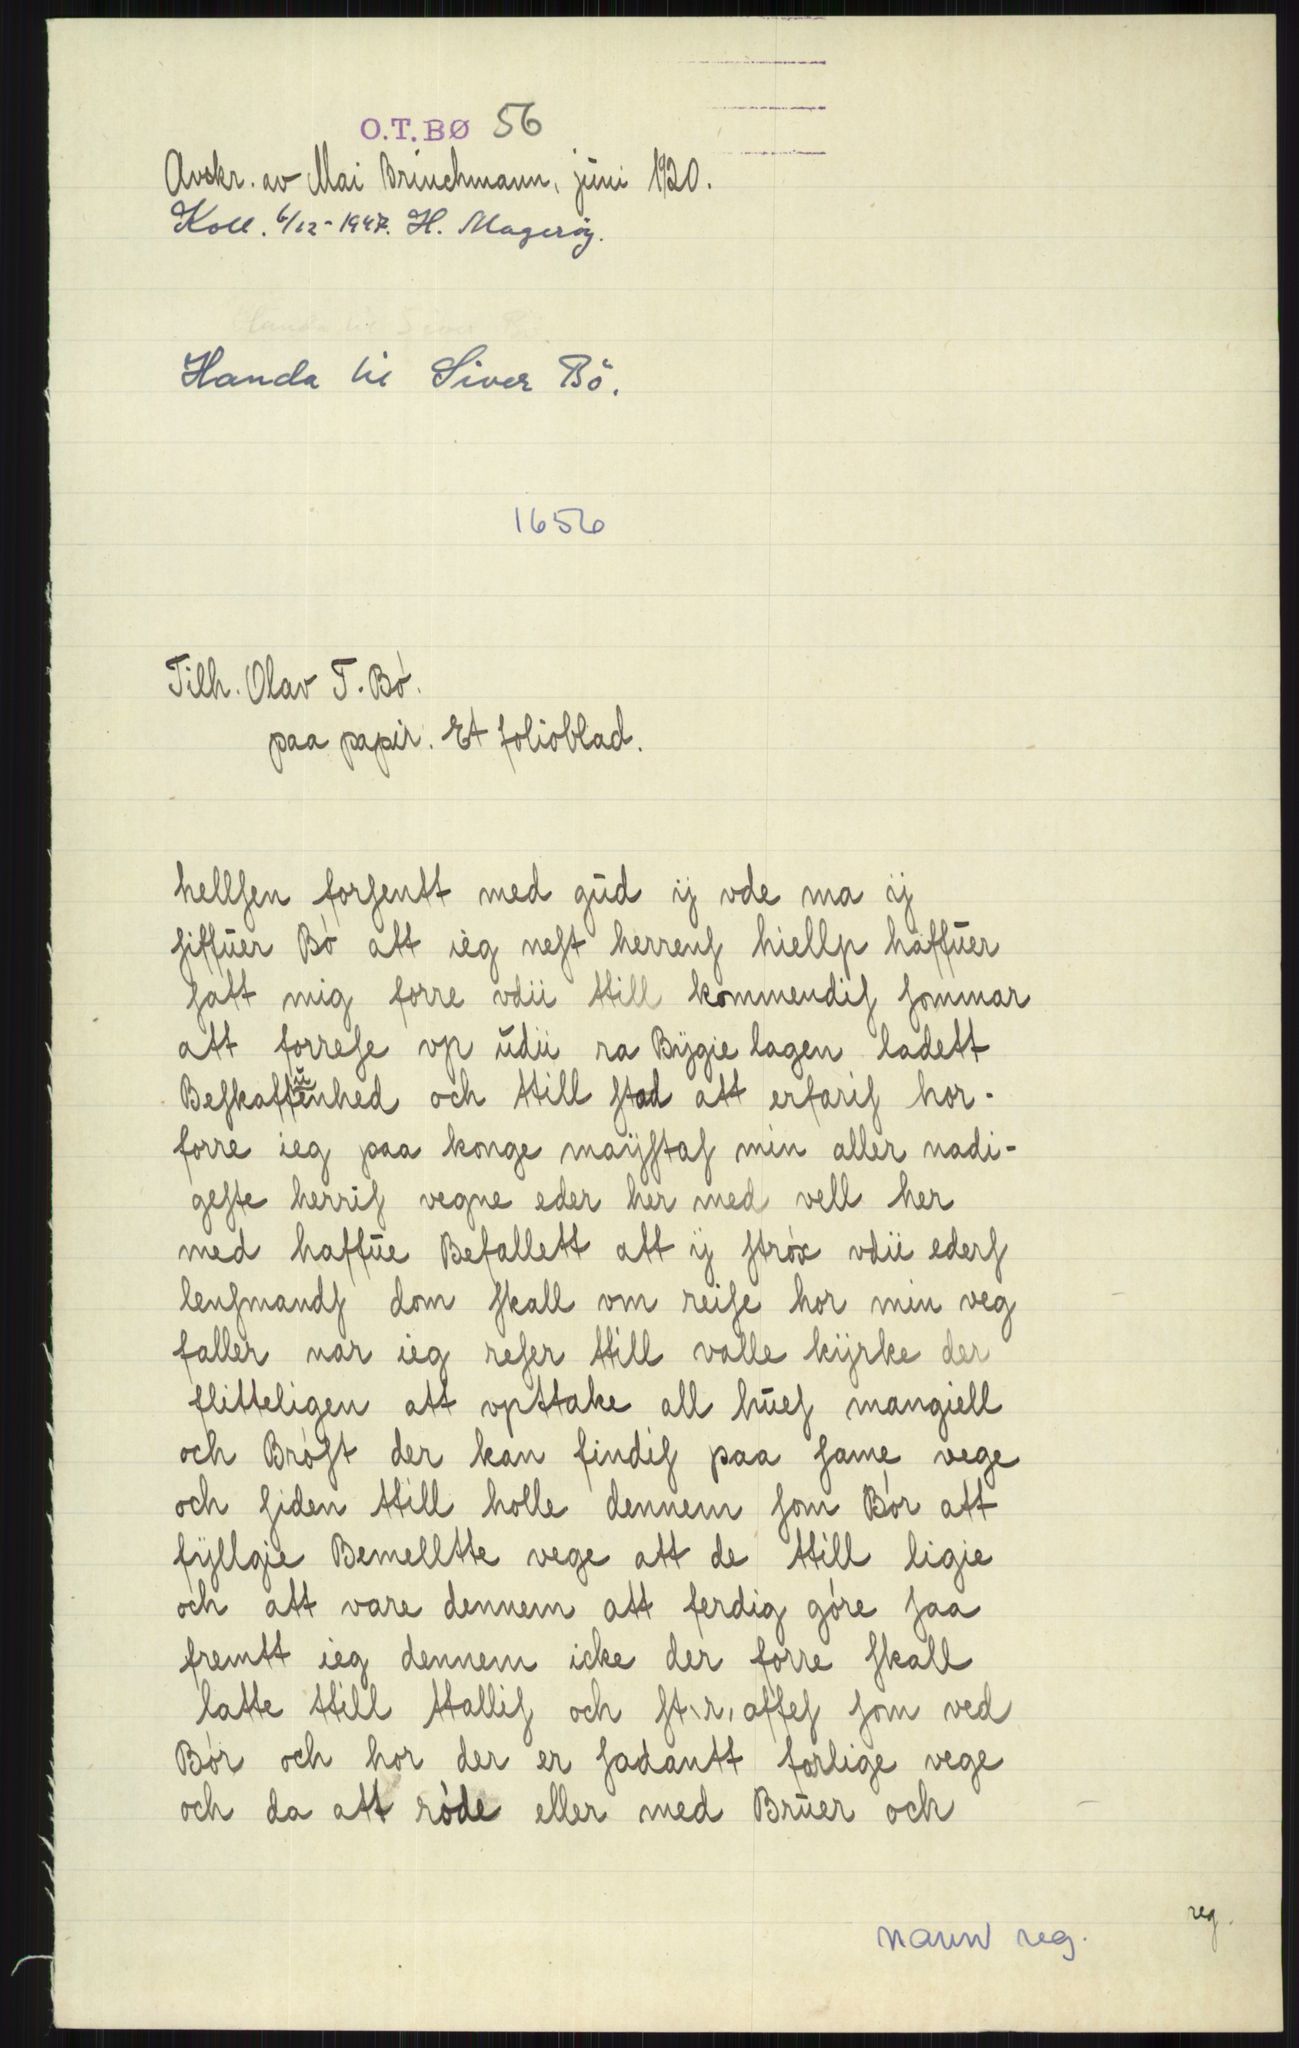 O.T.BØ 56
Avskr. av Mai Brinchmann, juni 1920.
Koll. 6/12-1947. H. Magerøy.
Handa til Siver Bö.
1656
Tilh. Olav T. Bó.
paa papir. Et folioblad.
hellsen forsentt med gud ij vde ma ij
siffuer Bó att ieg nest herrens hiellp haffuer
satt mig forre vdii till kommendis sommar
att forrese vp udii ra Bygie lagen ladett
Beskaffenhed och till stad att erfaris hor-
forre ieg paa konge maystas min aller nadi-
geste herris vegne eder her med vell her
med haffue Befallett att ij stróx vdii eders
lensmands dom skall vm reise hor min veg
faller nar ieg reser till valle kyrke der
flitteligen att vpttake all hues mangiell
och Bróst der kan findis paa same vege
och siden till holle dennem som Bór att
fyllgie Bemellte vege att de till ligie
och att vare dennem att ferdig góre saa
fremtt ieg dennem icke der forre skall
latte till ttallis och st\r, affes som ved
Bór och hor der er sadantt farlige vege
och da att róde eller med Bruer och
navn reg.
reg.